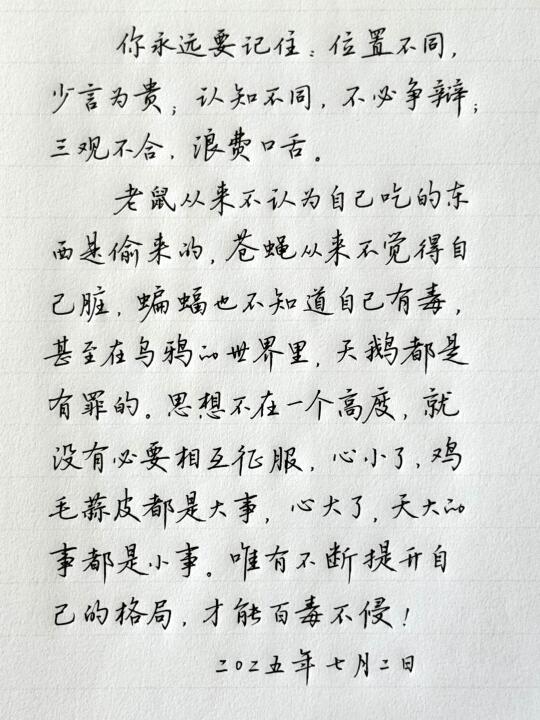 你永远要记住：位置不同，
少言为贵；认知不同，不必争辩；
三观不合，浪费口舌。
老鼠从来不认为自己吃的东
西是偷来的，苍蝇从来不觉得自
己脏，蝙蝠也不知道自己有毒，
甚至在乌鸦的世界里，天鹅都是
有罪的。思想不在一个高度，就
没有必要相互征服，心小了，鸡
毛蒜皮都是大事，心大了，天大的
事都是小事。唯有不断提升自
己的格局，才能百毒不侵！
二〇二五年七月二日